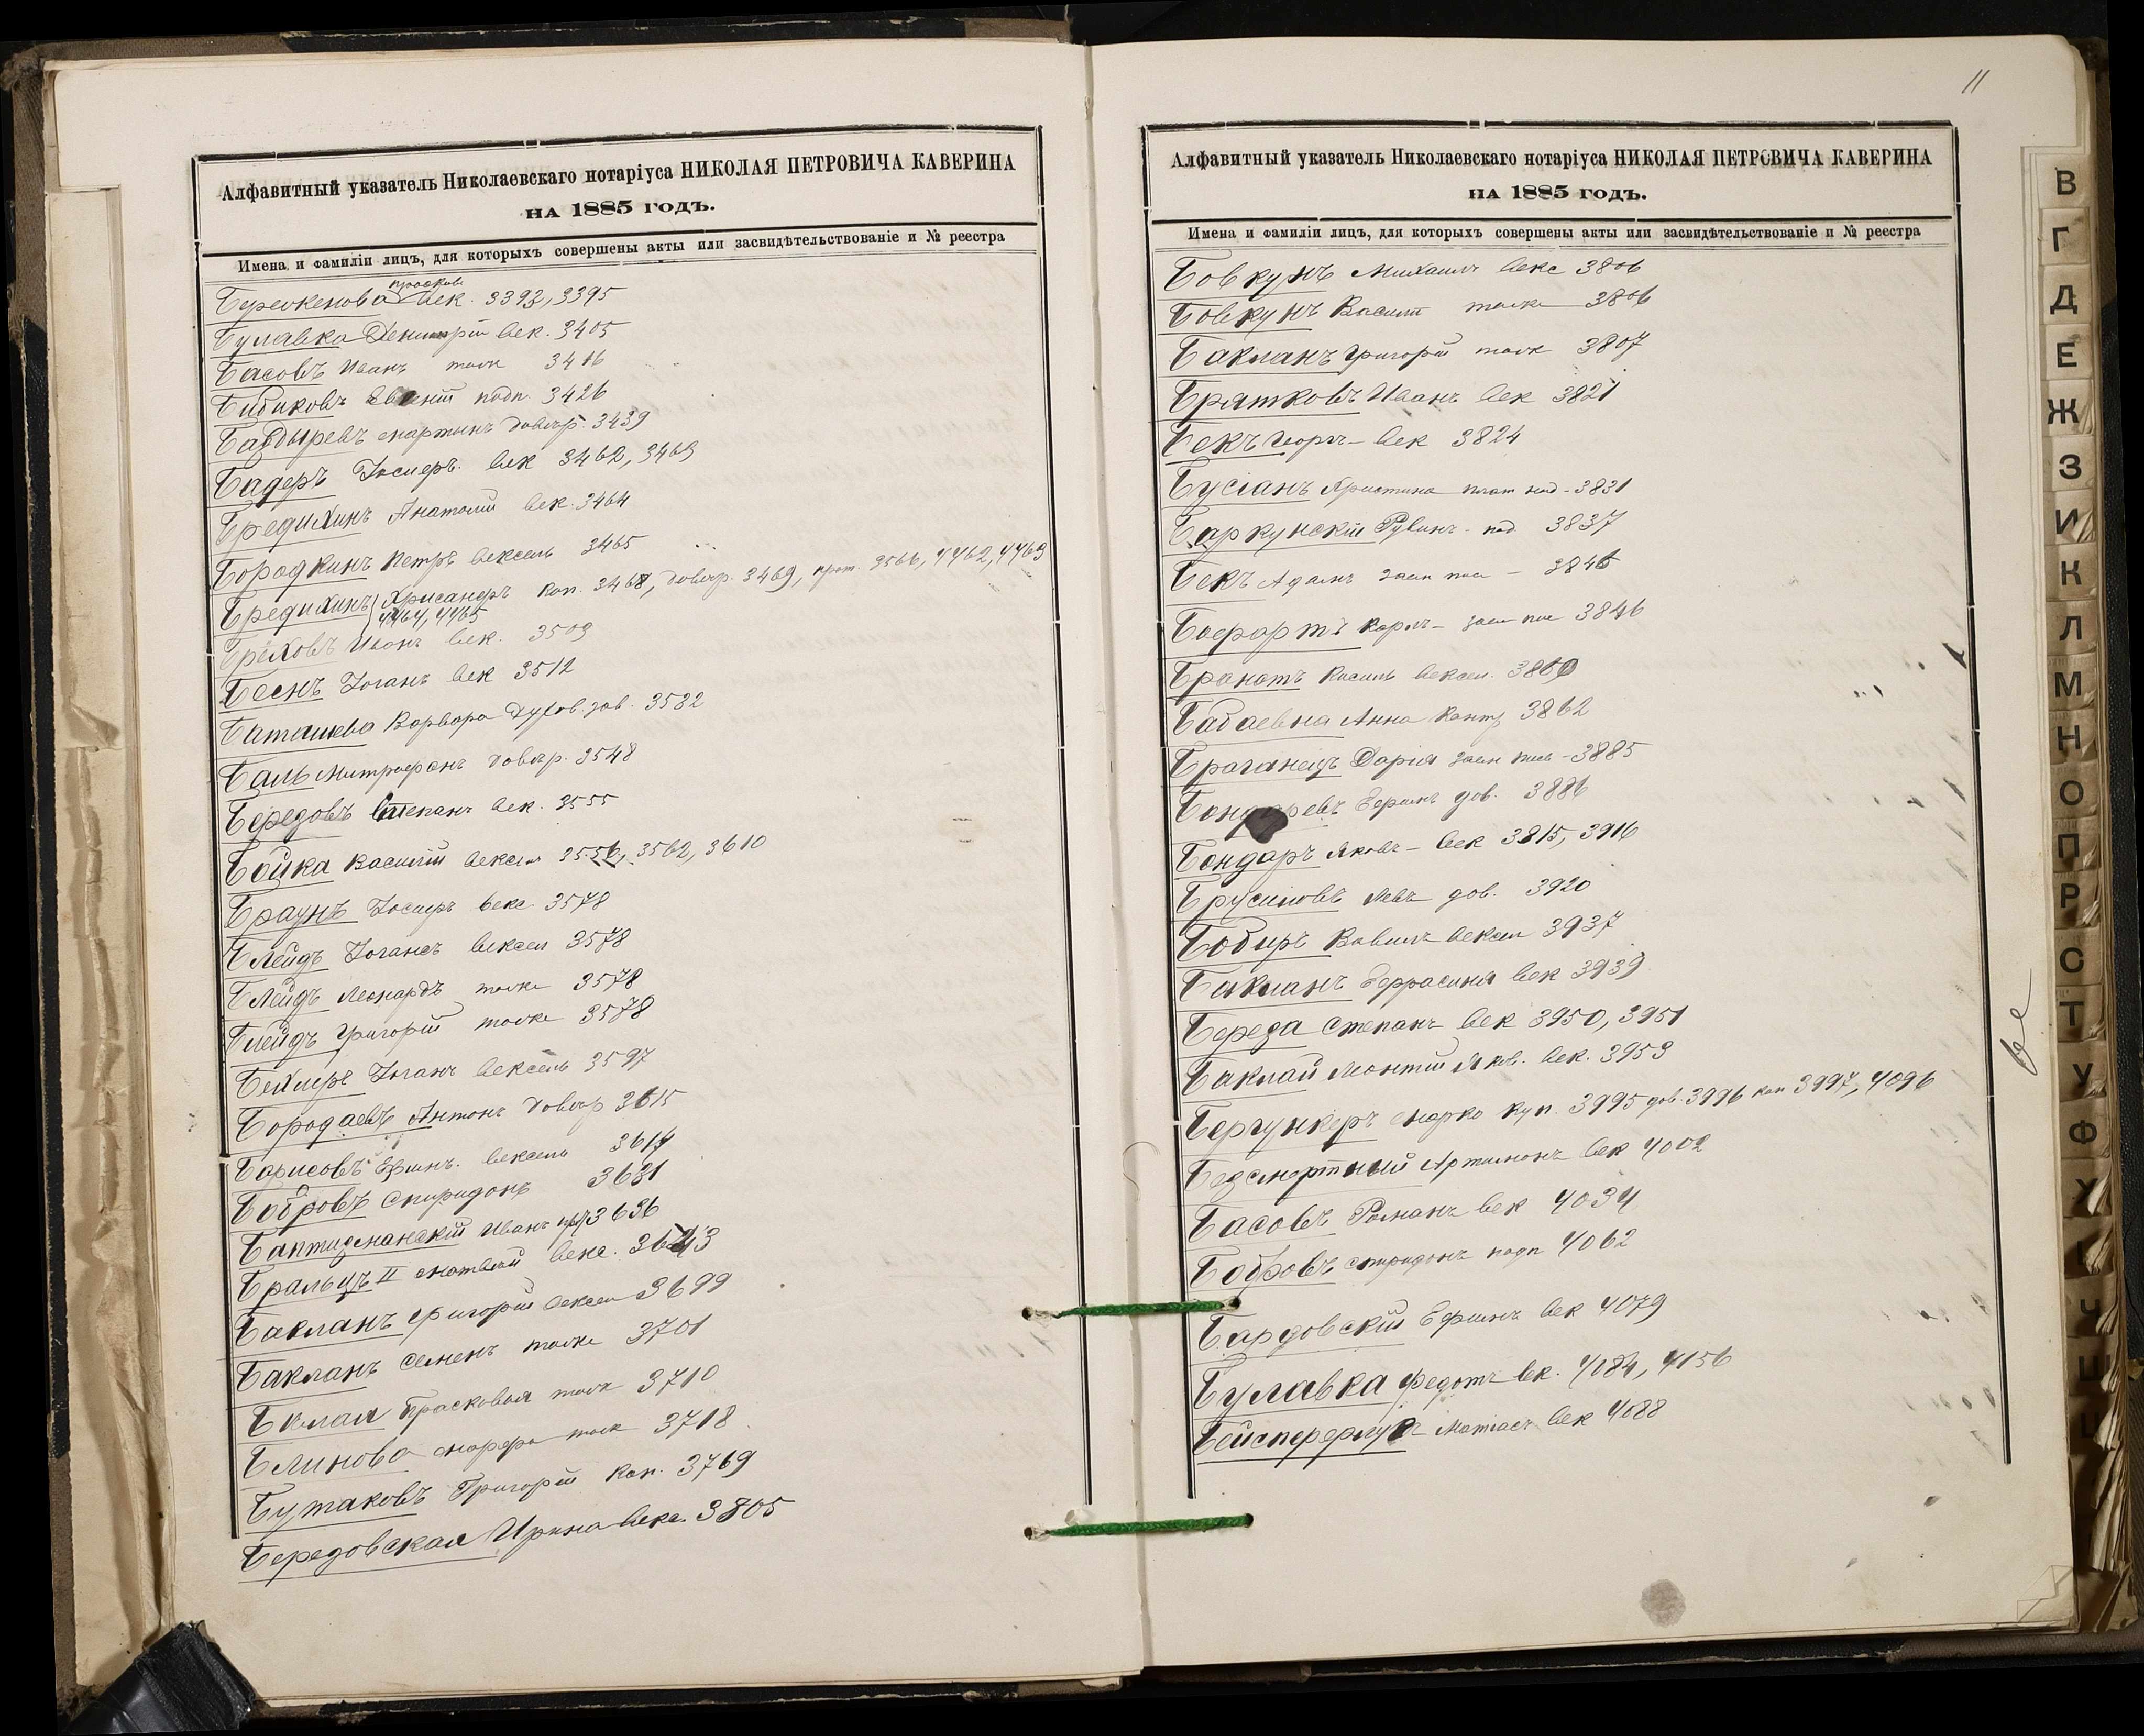 Алфавитный указатель Николаевскаго нотаріуса НИКОЛАЯ ПЕТРОВИЧА КАВЕРИНА
НА 1885 ГОДЪ.
Имена и фамиліи лицъ, для которыхъ совершены акты или засвидѣтельствованіе и № реестра
век. 3393, 3395
Булавка век. 3405
Басовъ Иванъ тоже 3416
Бибиковъ подп. 3426
довѣр. 3439
Бадеръ век 3462, 3463
Бредихинъ Анатолій век. 3464
Бородкинъ Петръ вексель 3465
Бредихинъ Хрисанфъ коп. 3468, довѣр. 3469, прот. 3566, 4462, 4463
4464, 4465
Грѣховъ Иванъ век. 3509
Беснъ Іоганъ век 3512
Баташева Варвара духов. зав. 3532
Баль Митрофанъ довѣр. 3548
Бередовъ Степанъ век. 3555
Бойка Василій вексел 3556, 3562, 3610
Браунъ Іосифъ векс. 3578
Блейдъ Іоганъ вексел 3578
Блейдъ Леонардъ тоже 3578
Блейдъ Григорій тоже 3578
Іоганъ вексель 3597
Бородаевъ Антонъ довѣр 3615
Борисовъ Ефимъ. вексель 3617
Бобровъ Спиридонъ 3631
Баптизманскій Иванъ 3636
Бральцъ II Матвѣй векс. 3643
Бакланъ Григорій вексел 3699
Бакланъ Семенъ тоже 3701
Прасковья тоже 3710
Блинова Марфа тоже 3718
Бутаковъ Григорій коп. 3769
Бередовская Ирина векс. 3805
11
Алфавитный указатель Николаевскаго нотаріуса НИКОЛАЯ ПЕТРОВИЧА КАВЕРИНА
НА 1885 ГОДЪ.
Имена и фамиліи лицъ, для которыхъ совершены акты или засвидѣтельствованіе и № реестра
Бовкунъ Михаилъ векс 3806
Бовкунъ Василій тоже 3806
Бакланъ Григорій тоже 3807
Братковъ Иванъ век 3821
Бекъ Георгъ - век 3824
Бусіанъ Христина 3831
Баркунскій Рувинъ - под 3837
Бекъ Адамъ заем пис - 3846
Босфартъ Карлъ - заем пис 3846
Бранатъ вексел. 3860
Бабаевна Анна контр 3862
Браганецъ Дарія заем пись - 3885
Бондаревъ Ефимъ дов. 3886
Бондаръ Яковъ - век 3815, 3916
Брусиловъ Левъ дов. 3920
Бобиръ Вавилъ вексел 3937
Бакланъ Геррасимъ век 3939
Береза Степанъ век 3950, 3951
Баклай Леонтій Яков. век. 3953
Бергункеръ Марко куп. 3995 дов. 3996 коп 3997, 4096
Безсмертный Артамонъ век 4002
Басовъ Романъ век 4034
Бобровъ Спиридонъ подп 4062
Бардовскій Ефимъ век 4079
Булавка Федотъ век. 4084, 4156
Матіасъ век 4088
В
Г
Д
Е
Ж
З
И
К
Л
М
Н
О
П
Р
С
Т
У
Ф
Х
Ч
Ш